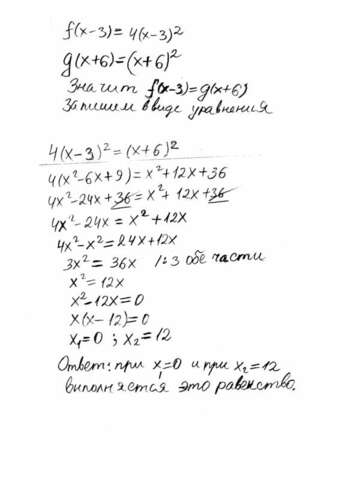 f(x-3)=4(x-3)²
g(x+6)=(x+6)²
Значит f(x-3)=g(x+6)
Запишем в виде уравнения
4(x-3)²=(x+6)²
4(x²-6x+9)=x²+12x+36
4x²-24x+36=x²+12x+36
4x²-24x=x²+12x
4x²-x²=24x+12x
3x²=36x /:3 обе части
x²=12x
x²-12x=0
x(x-12)=0
x₁=0 ; x₂=12
Ответ: при x₁=0 и при x₂=12
виполняется это равенство.